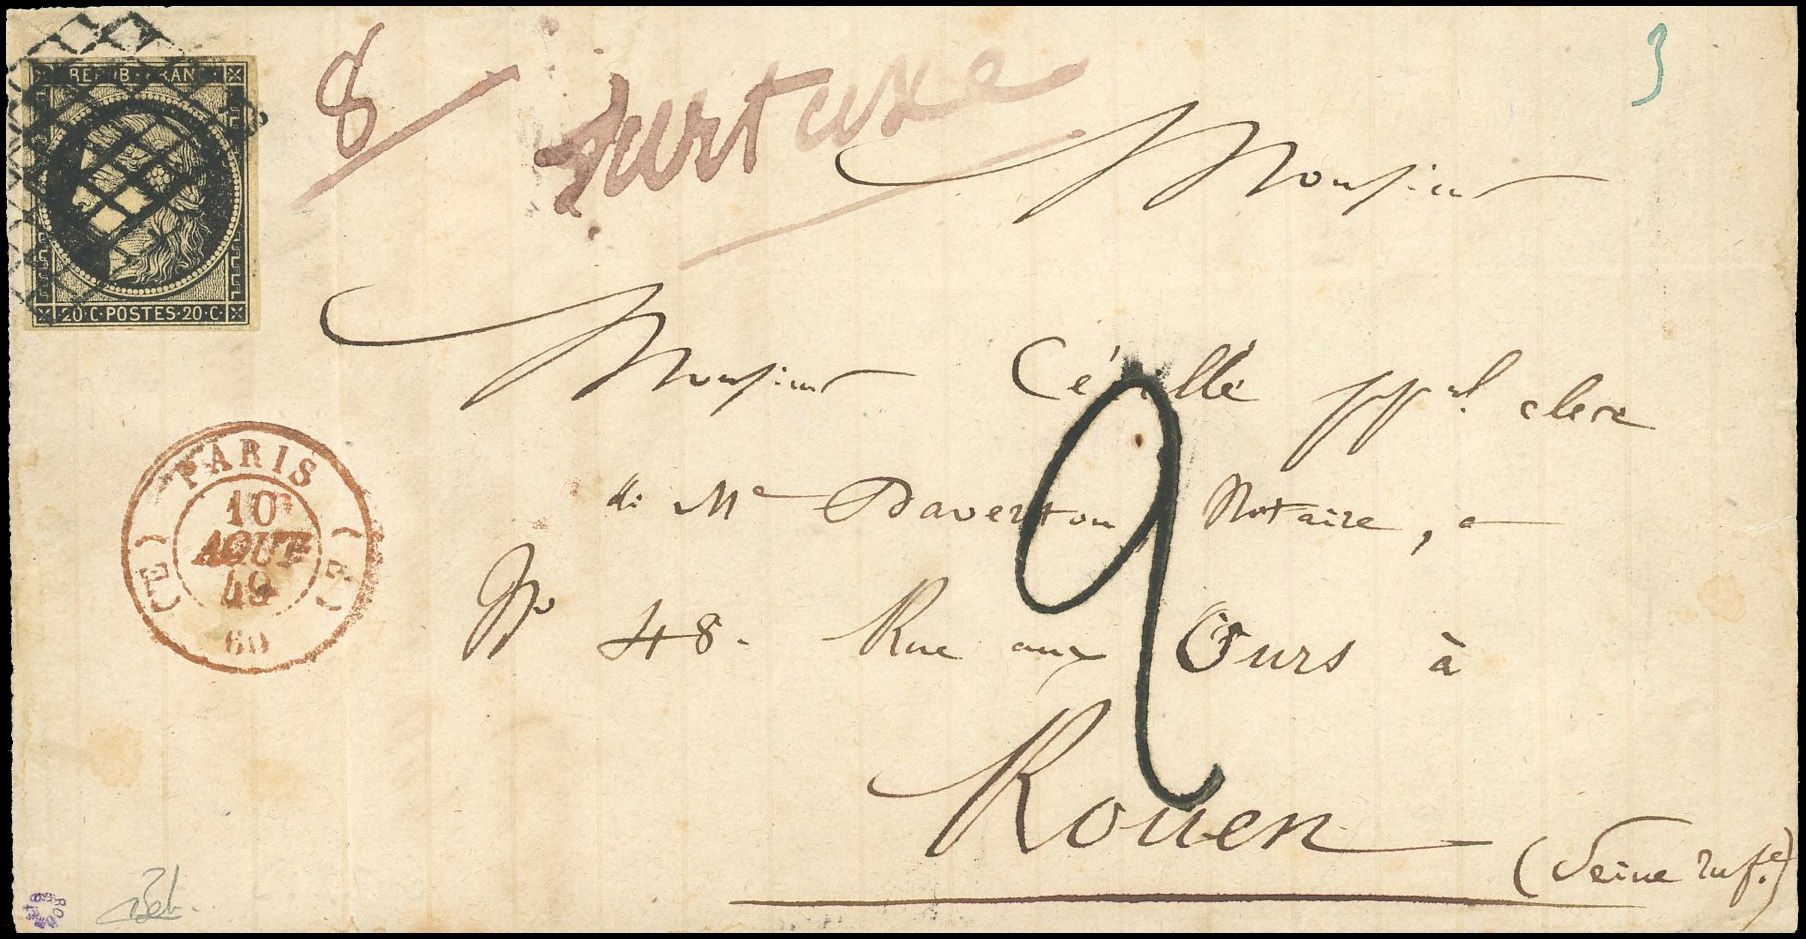 REPUB·FRANC·
·20·C·POSTES·20·C·
8
Surtaxe
3
Monsieur
Monsieur Céville ppal. clerc
de Me Daverton Notaire, a
No 48. Rue aux Ours à
Rouen
(Seine Infe.)
2
PARIS
(E) (E)
10
AOUT
49
60